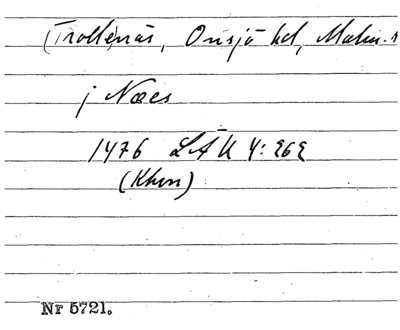 (Trolle)näs, Onsjö hd, Malm.
j Næs
1476 LÄU 4: 262
(Khvn)
Nr 5721.